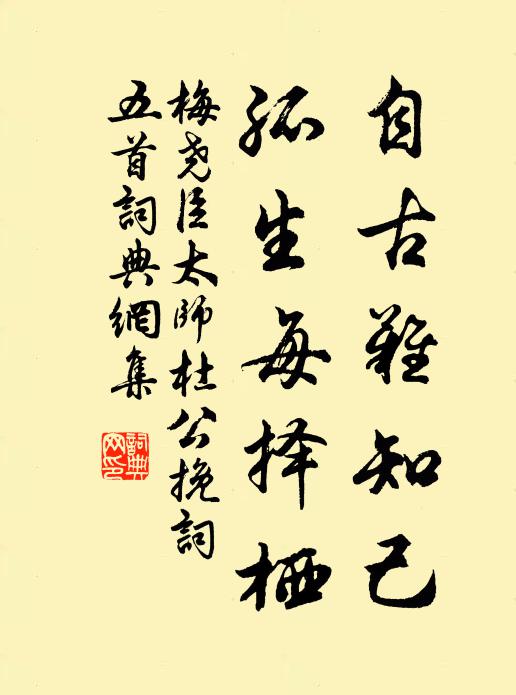 自古难知己
孤生每择栖
梅尧臣太师杜公挽詞
五首詞典網集
詞典网印